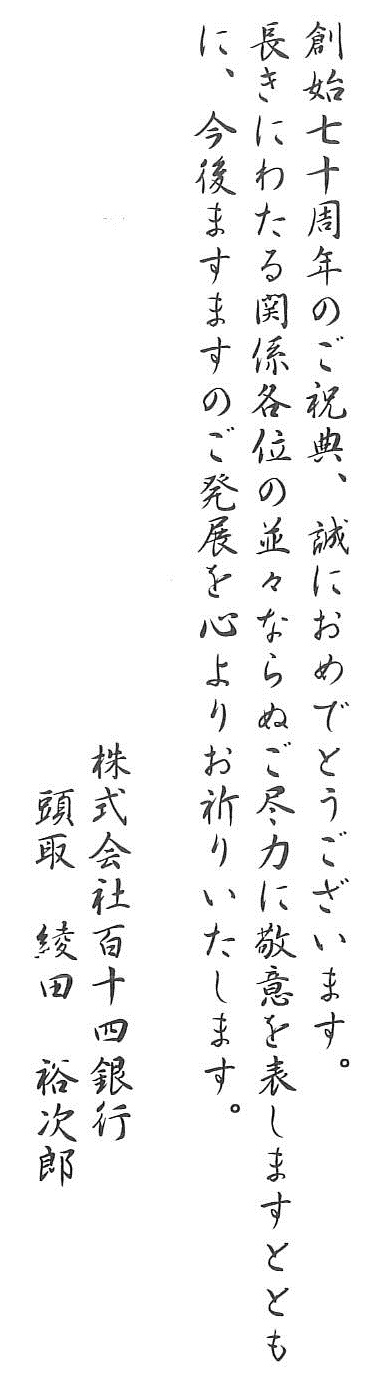 創始七十周年のご祝典、誠におめでとうございます。
長きにわたる関係各位の並々ならぬご尽力に敬意を表しますととも
に、今後ますますのご発展を心よりお祈りいたします。
株式会社百十四銀行
頭取　綾田　裕次郎